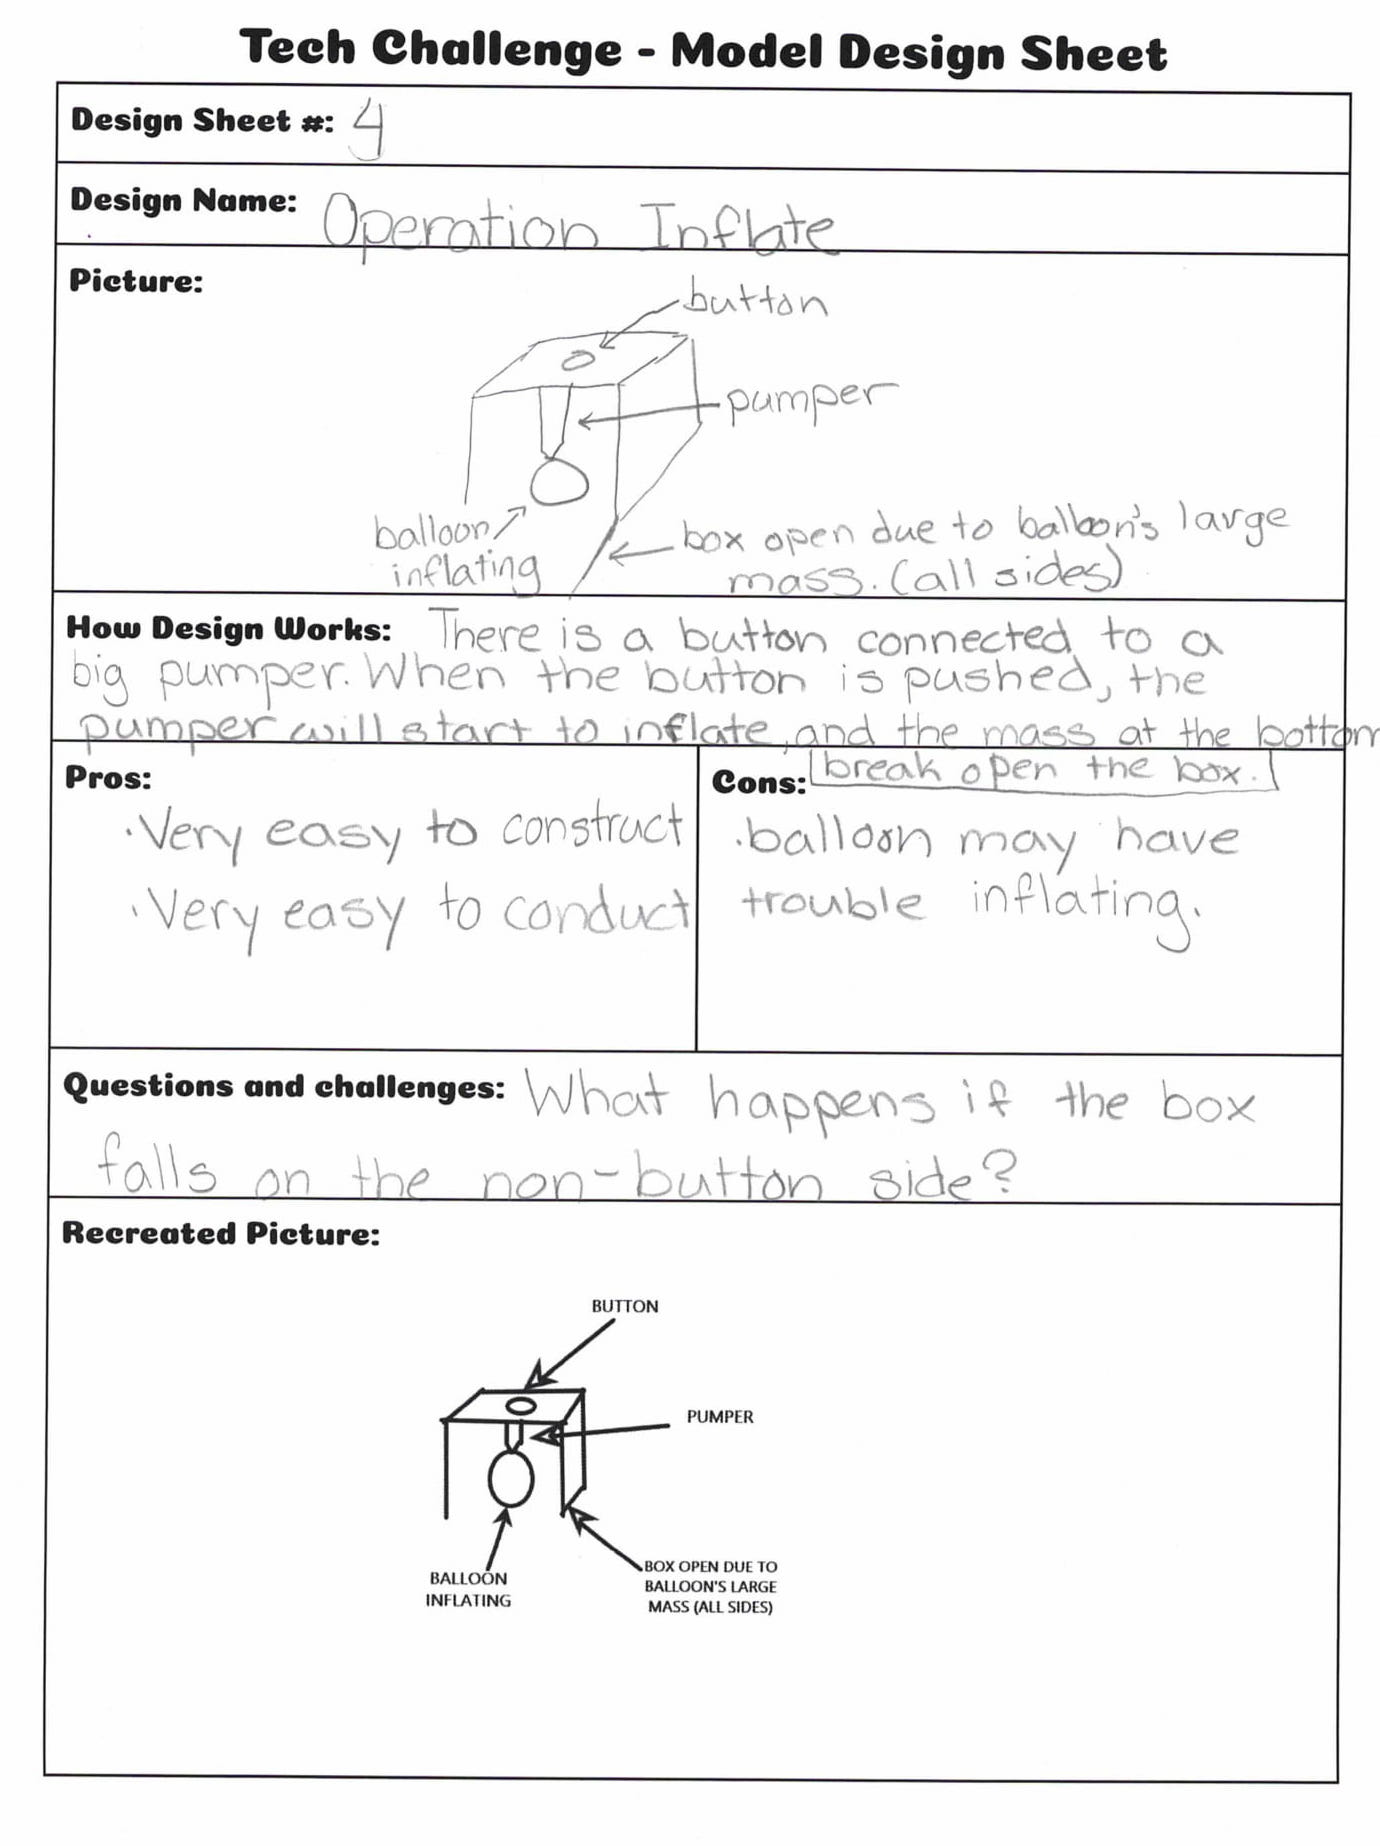 Tech Challenge - Model Design Sheet
Design Sheet #: 4
Design Name: Operation Inflate
Picture:
button
pumper
balloon
inflating
box open due to balloon's large
mass. (all sides)
How Design Works: There is a button connected to a
big pumper. When the button is pushed, the
pumper will start to inflate, and the mass at the bottom
break open the box.
Pros:
· Very easy to construct
· Very easy to conduct
Cons:
· balloon may have
trouble inflating.
Questions and challenges: What happens if the box
falls on the non-button side?
Recreated Picture:
BUTTON
PUMPER
BALLOON
INFLATING
BOX OPEN DUE TO
BALLOON'S LARGE
MASS (ALL SIDES)